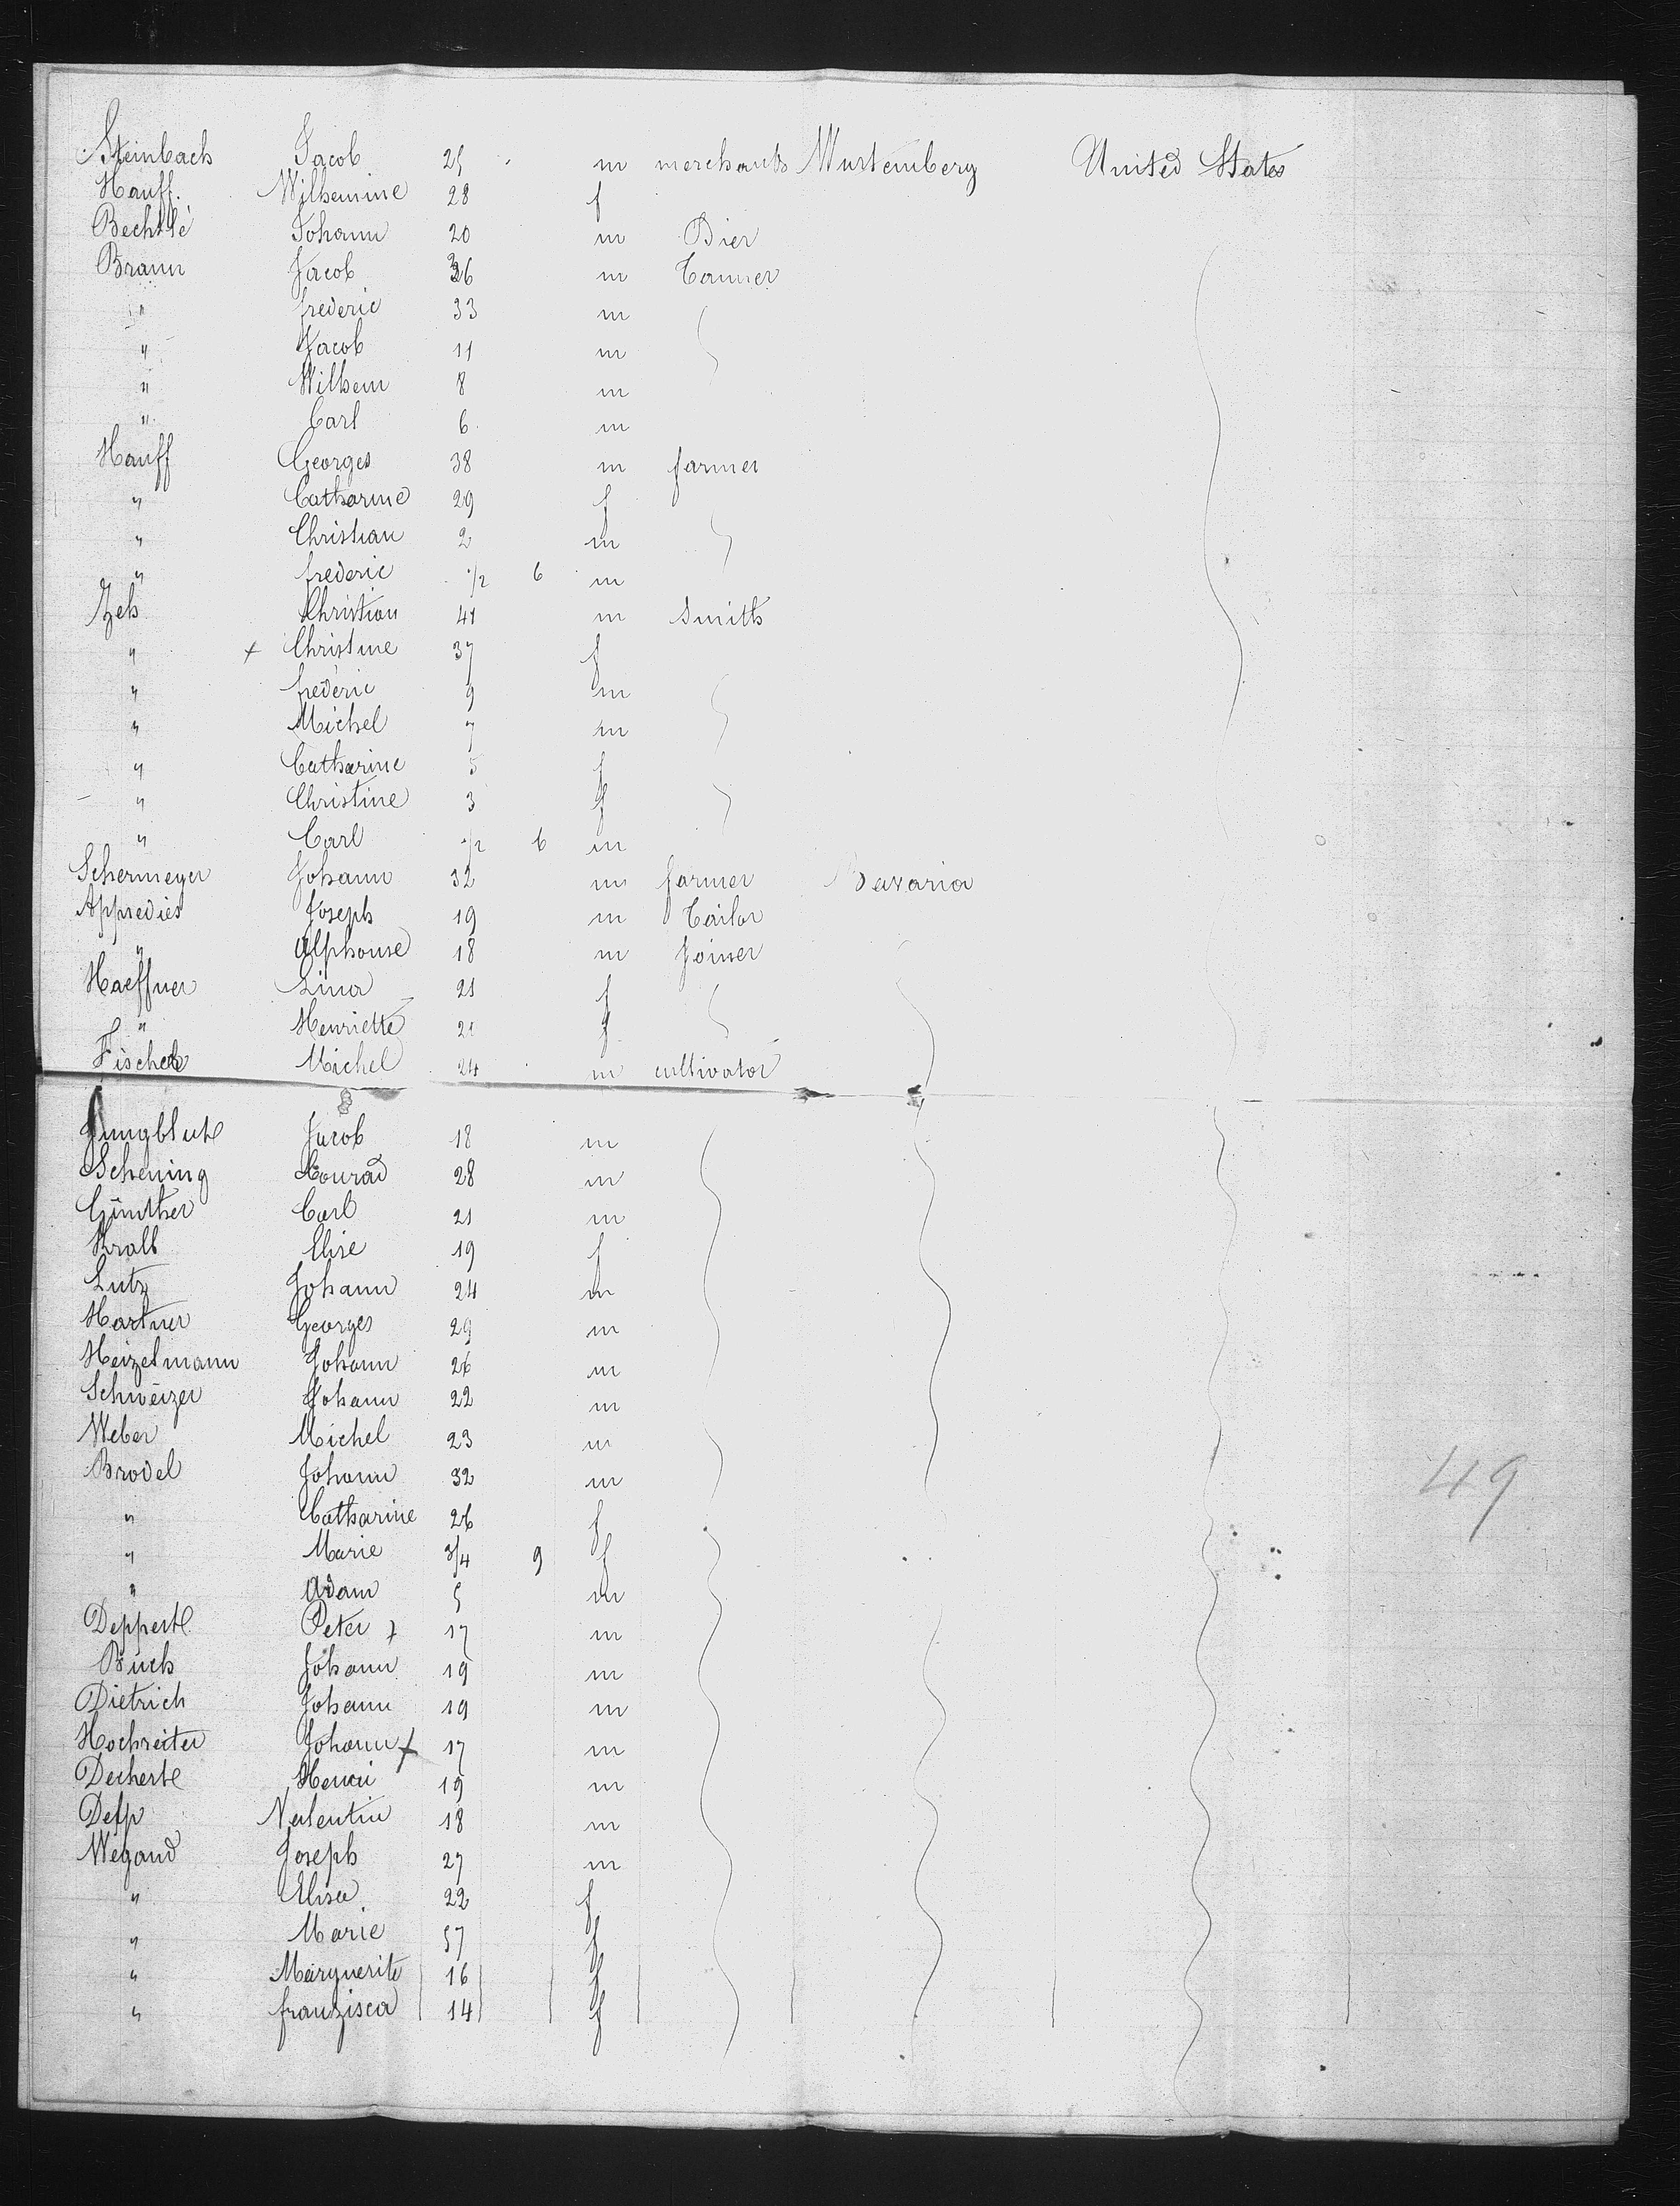 Steinbach Jacob 25 m merchants Wurtemberg United States
Hauff. Wilhemine 28 f
Bechtlé Johann 20 m Dier
Braun Jacob 36 m Tanner
" frederic 33 m
" Jacob 11 m
" Wilhem 8 m
" Carl 6 m
Hauff Georges 38 m farmer
" Catharine 29 f
" Christian 2 m
" frederic 1/2 6 m
Zeh Christian 41 m Smith
" + Christine 37 f
" frederic 9 m
" Michel 7 m
" Catharine 5 f
" Christine 3 f
" Carl 1/2 6 m
Schermeyer Johann 32 m farmer Bavaria
Appredies Joseph 19 m Tailor
" Alphonse 18 m Joiner
Haeffner Lina 21 f
" Henriette 21 f
Fischer Michel 24 m cultivator
Jungblut Jacob 18 m
Schening Conrad 28 m
Günther Carl 21 m
Krall Elise 19 f
Lutz Johann 24 m
Hartner Georges 29 m
Heizelmann Johann 26 m
Schweizer Johann 22 m
Weber Michel 23 m
Brodel Johann 32 m
" Catharine 26 f
" Marie 3/4 9 f
" Adam 5 m
Deppert Peter + 17 m
Buch Johann 19 m
Dietrich Johann 19 m
Hochreiter Johann + 17 m
Dechert Henri 19 m
Valentin 18 m
Wegand Joseph 27 m
" Elisa 22 f
" Marie 57 f
" Marguerite 16 f
" franzisca 14 f
49